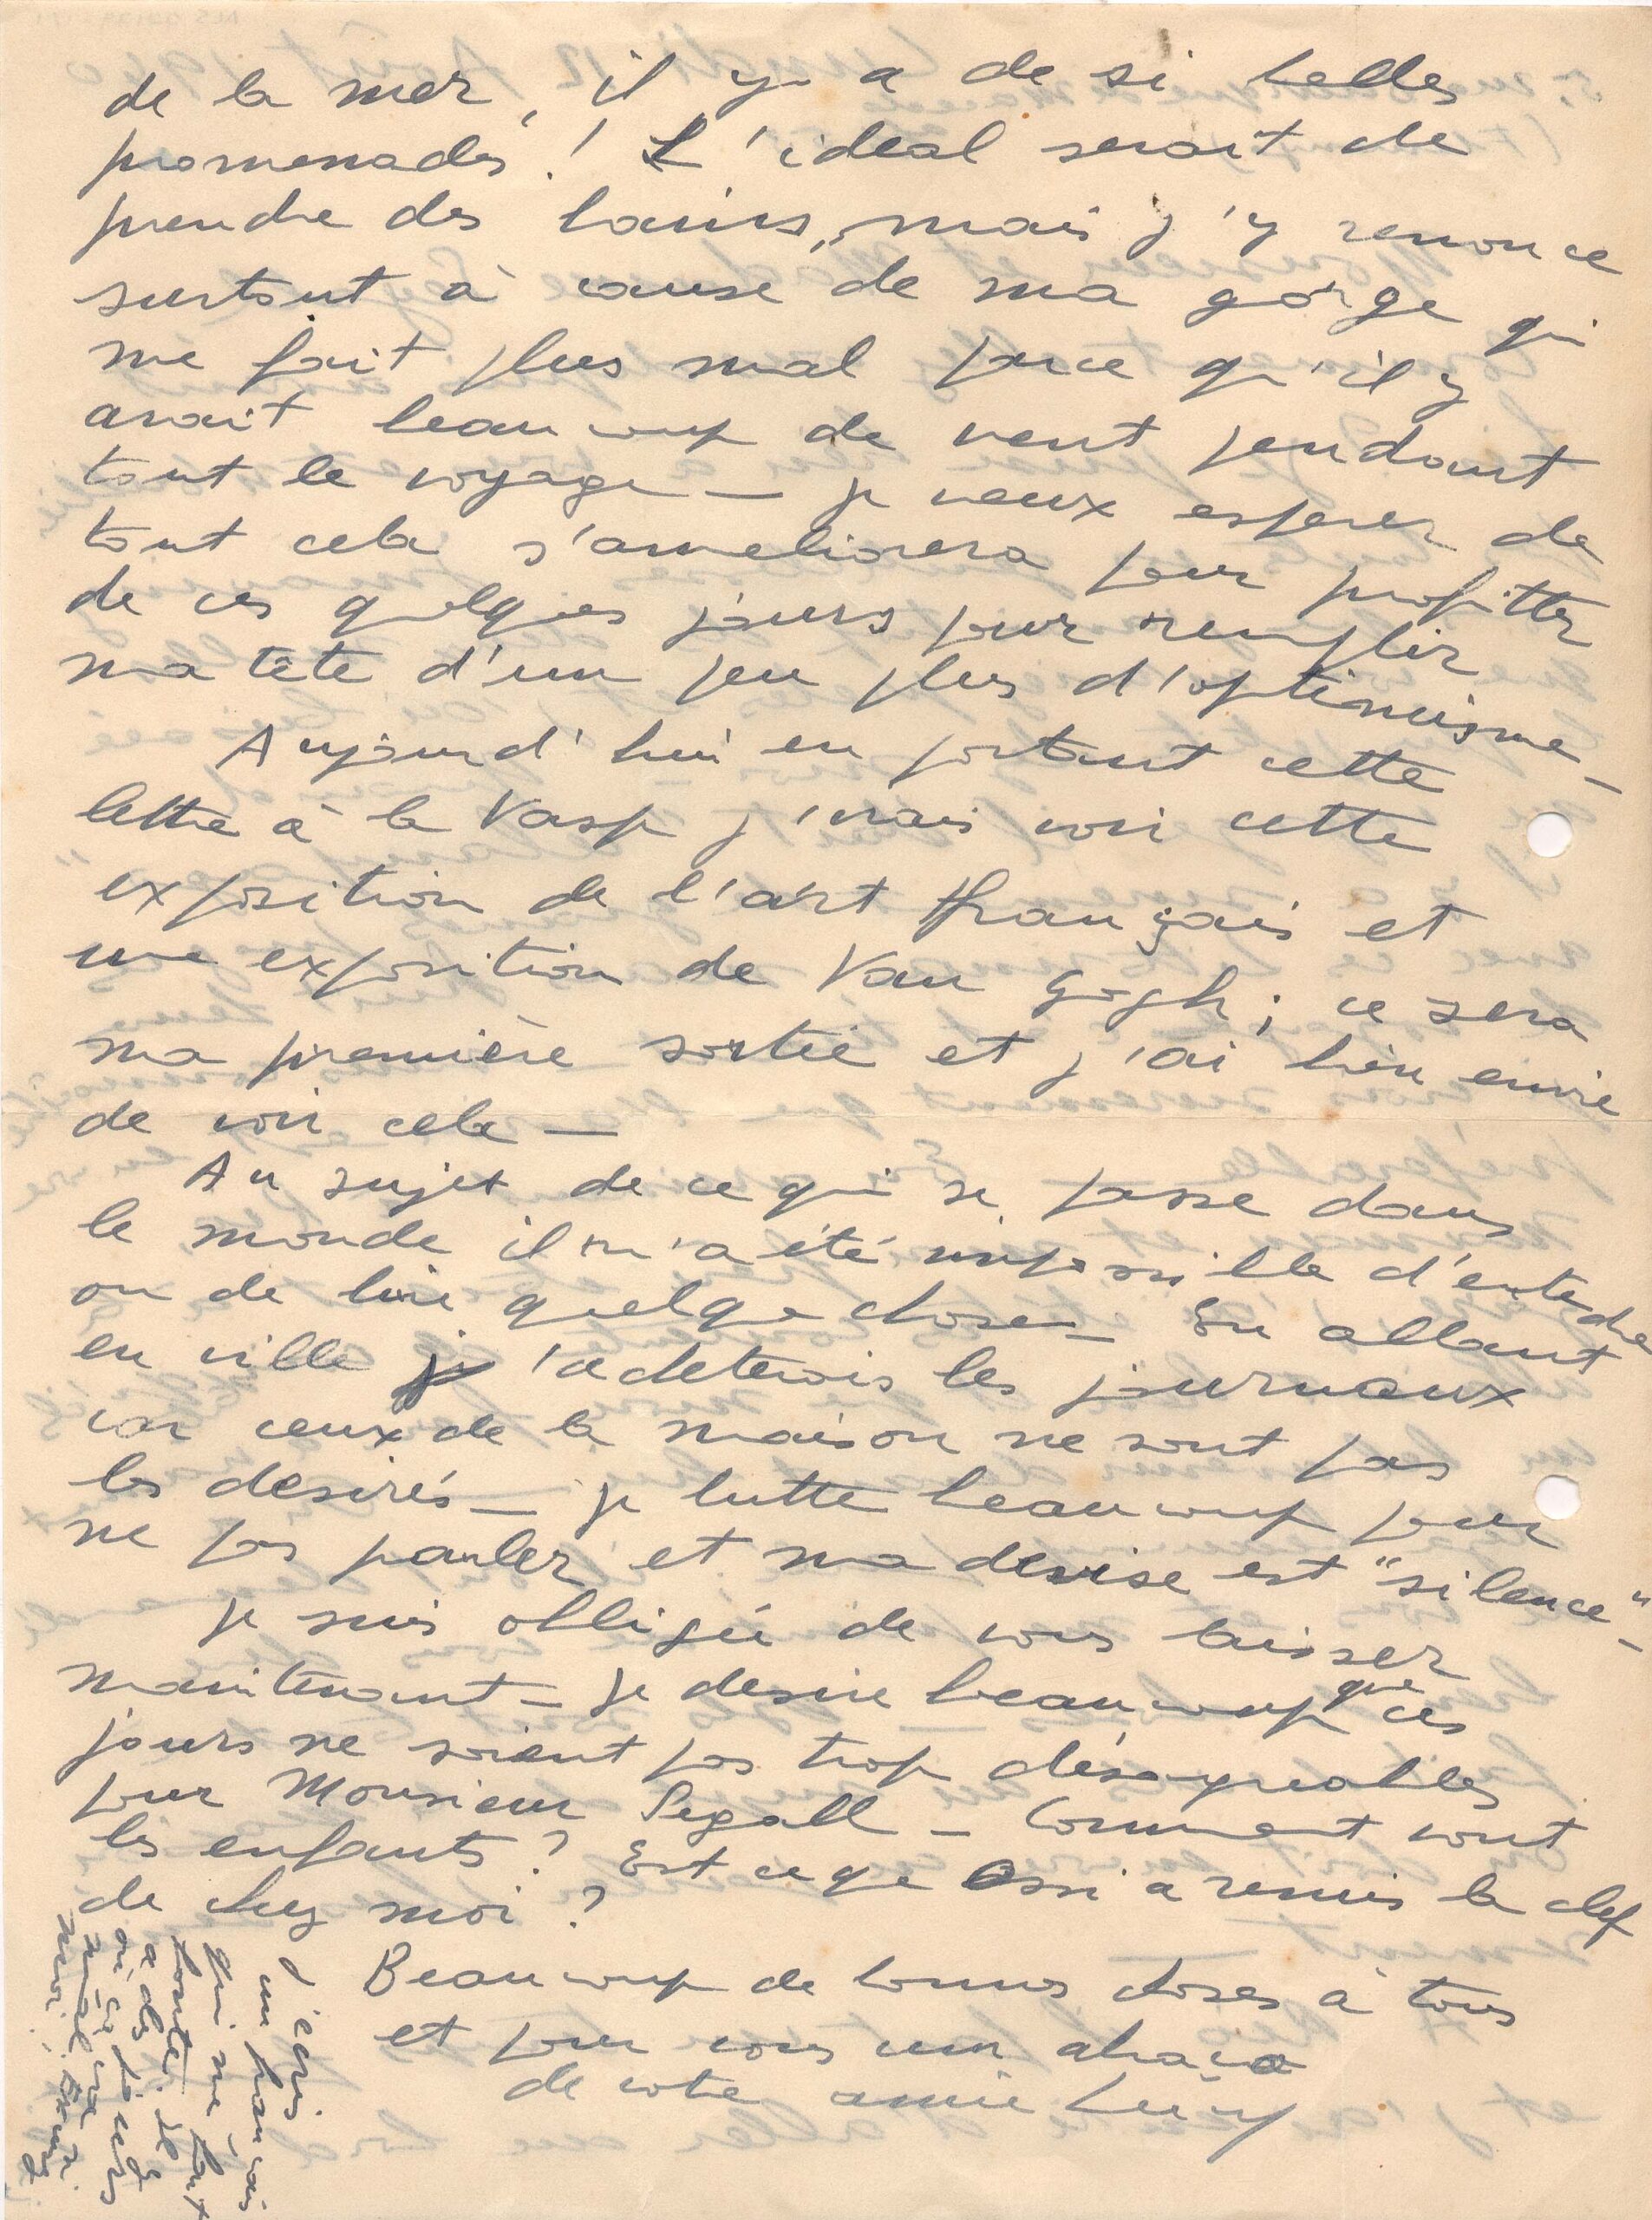 de la mer, il y a de si belles
promenades ! L'ideal serait de
prendre des bains, mais j'y renonce
surtout à cause de ma gorge qui
me fait plus mal parce qu'il y
avait beaucoup de vent pendant
tout le voyage — je veux esperer de
tout cela s'ameliorera pour profitter
de ces quelques jours pour remplir
ma tête d'un peu plus d'optimisme —
Aujourd'hui en portant cette
lettre à la Vasp j'irais voir cette
exposition de l'art français et
une exposition de Van Gogh ; ce sera
ma première sortie et j'ai bien envie
de voir cela —
Au sujet de ce qui se passe dans
le monde il m'a été impossible d'entendre
ou de lire quelque chose — En allant
en ville j'acheterais les journaux
car ceux de la maison ne sont pas
les desirés — je lutte beaucoup pour
ne pas parler et ma devise est "silence" —
je suis obligée de vous laisser
maintenant — je desire beaucoup que ces
jours ne soient pas trop désagreables
pour Monsieur Segall — Comment vont
les enfants ? Est ce que Ossi a remis la clef
de chez moi ?
Beaucoup de bonnes choses à tous
et pour vous um abraço
de votre amie Lucy
J'ecris
un français
qui me fait
honte. Il
a des